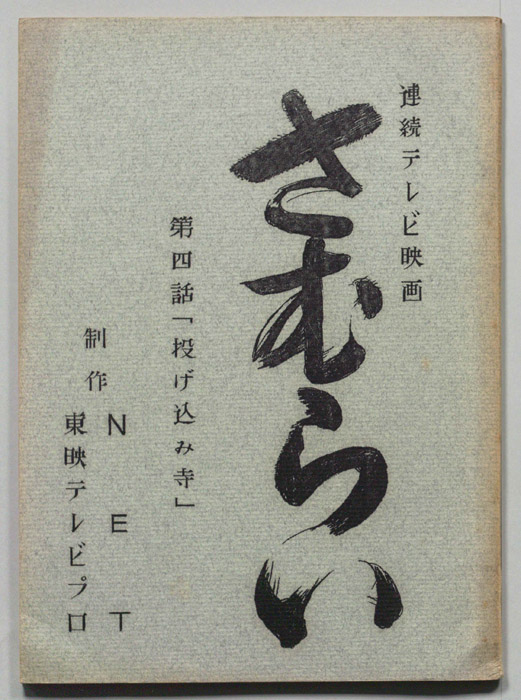 連続テレビ映画
さむらい
第四話「投げ込み寺」
制作
NET
東映テレビプロ